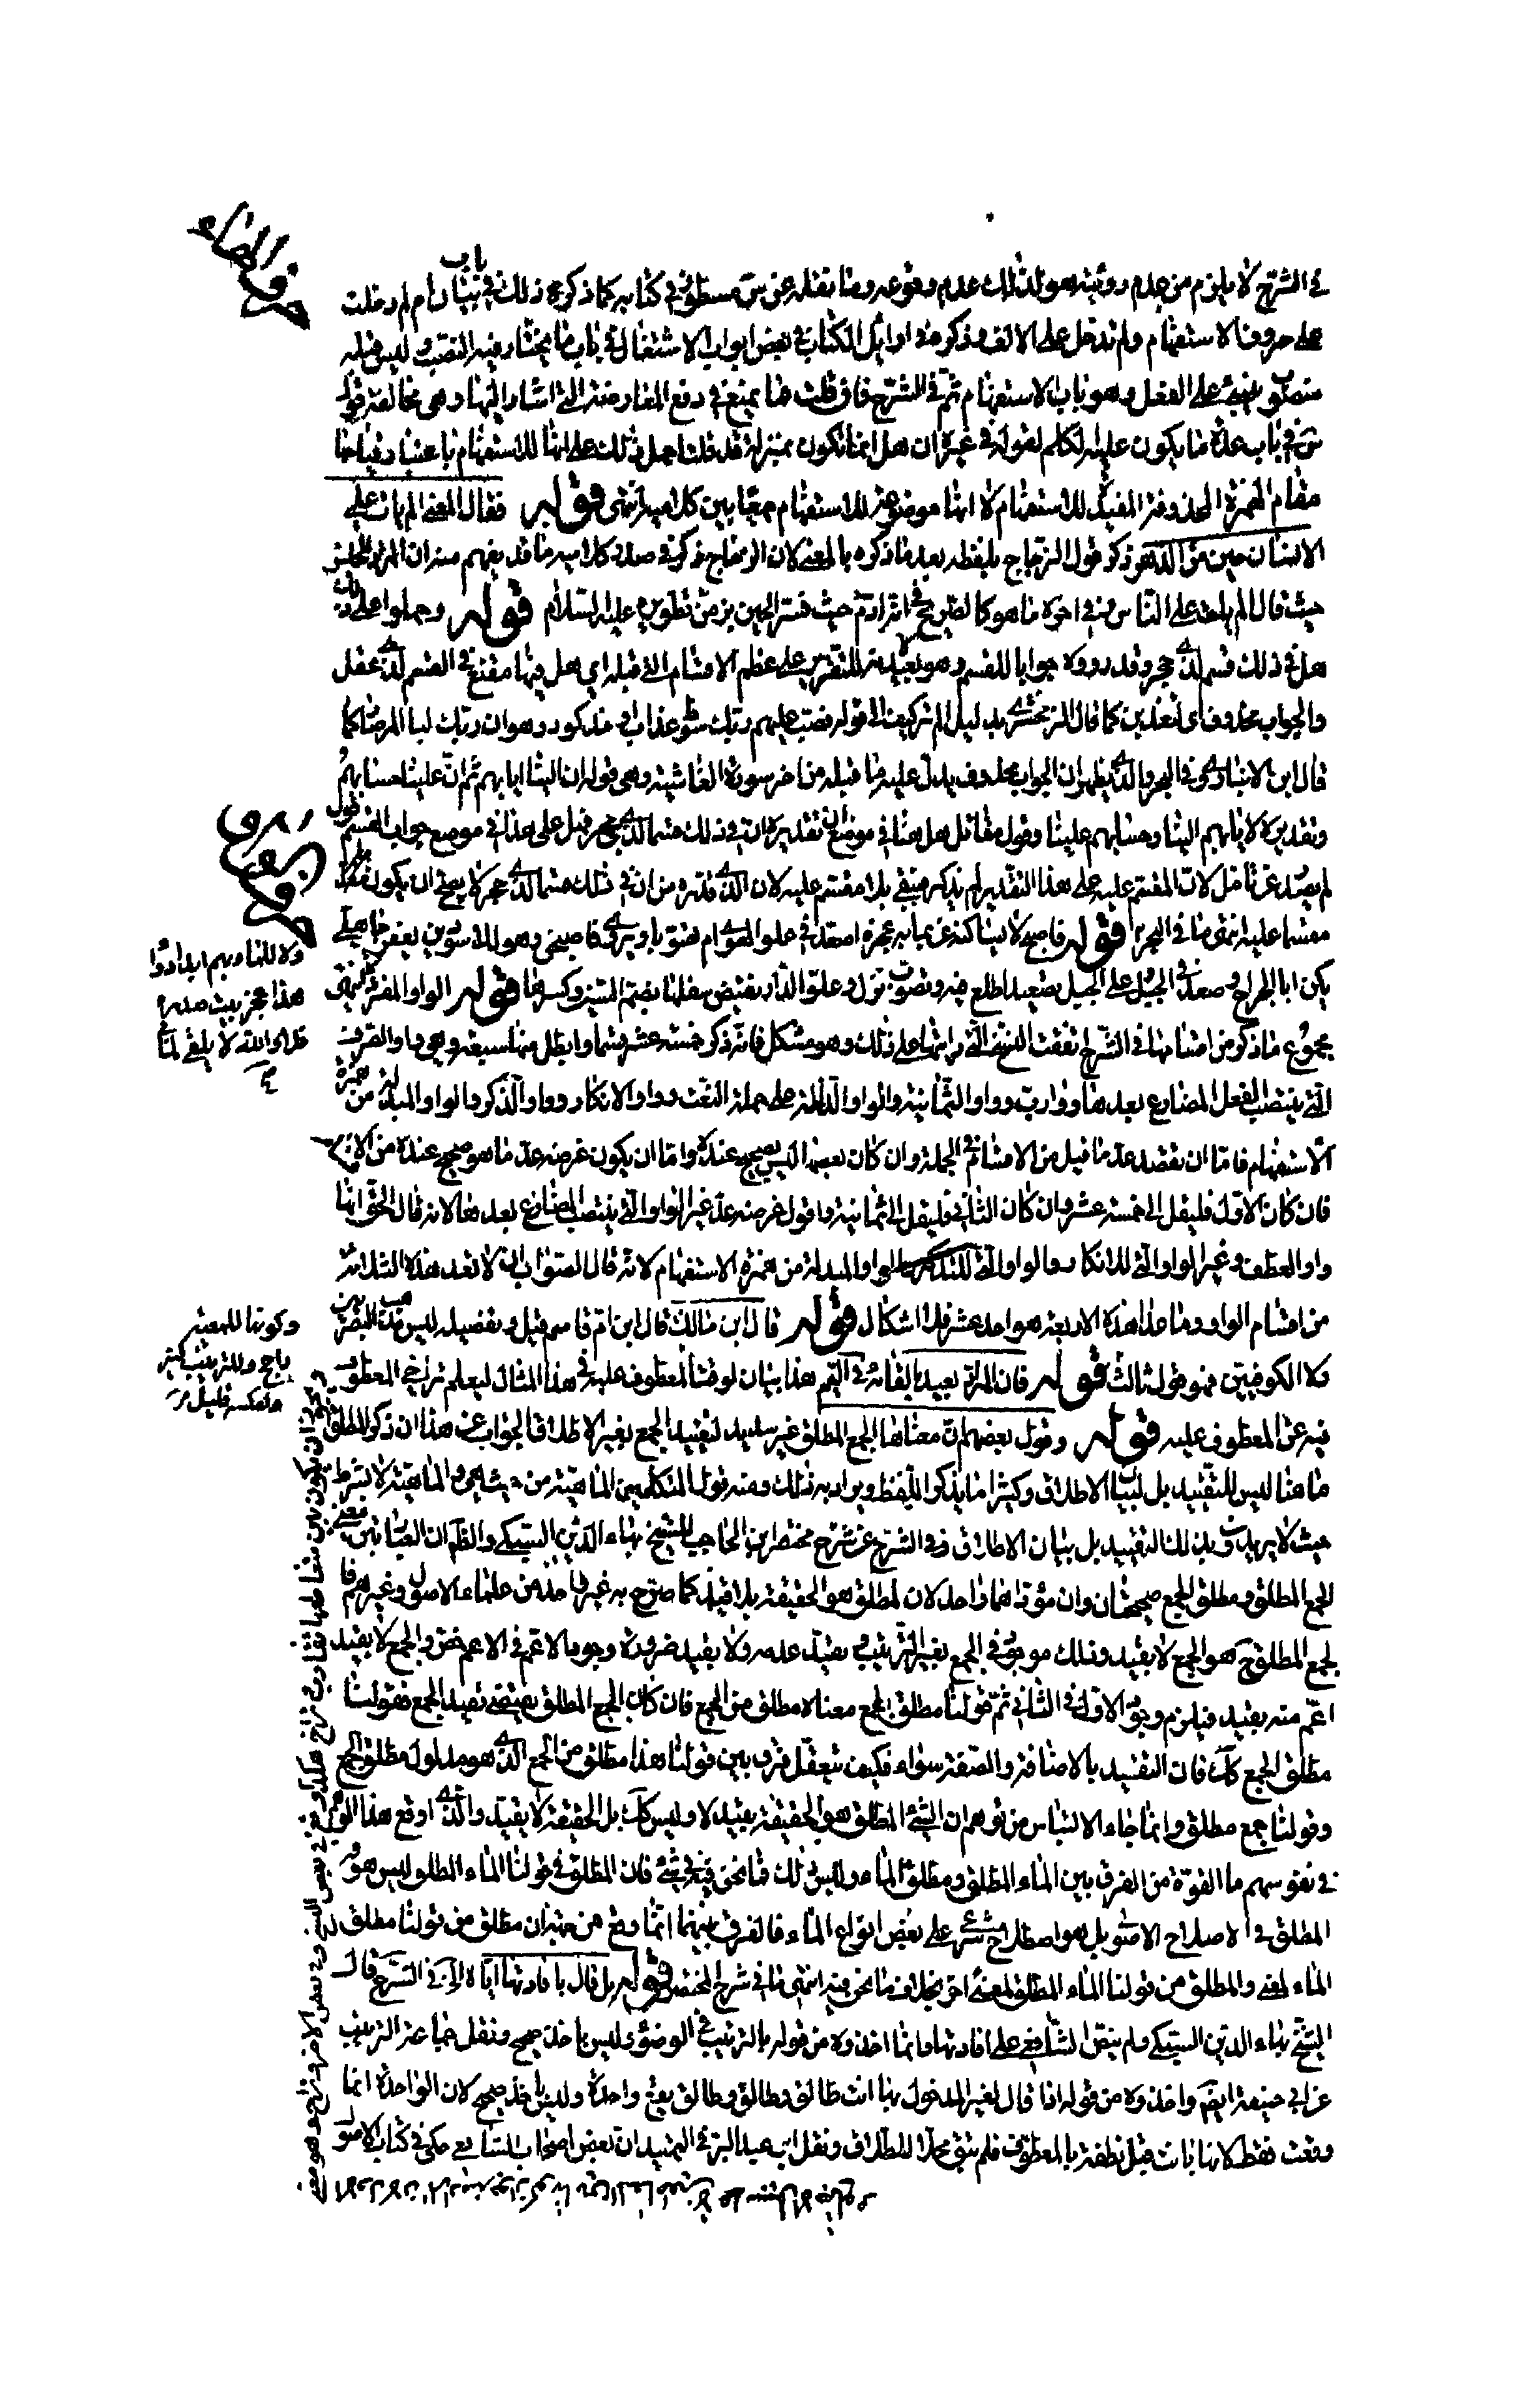 في الشرح لا يلزم من عدم رؤيته هو لذلك عدم وقوعه وما نقله عن س مسطور في كتابه كما ذكر ذلك في باب بيان أم لم دخلت
على حروف الاستفهام ولم تدخل على الالف وذكره في اوايل الكتاب في بعض ابواب الاشتغال في باب ما يختار فيه النصب وليس قبله
منصوب بني على الفعل وهو باب الاستفهام ثم في الشرح فان قلت فما يمنع في دفع المعارضة التي اشار اليها وهي مخالفة قول
س في باب عدة ما يكون عليه الكلم لقوله في غيره ان هل انما تكون بمنزلة قد قلت احمل ذلك على انها للاستفهام باعتبار قيامها
مقام الهمزة المحذوفة المفيدة للاستفهام لا انها موضوعة للاستفهام جمعا بين كلاميه انتهى قوله فقال المعنى الم يات على
الانسان حين من الدهر ذكر قول الزجاج بلفظه بعد ما ذكره بالمعنى لان الزجاج ذكر في صدر كلاميه ما قد يفهم منه ان المراد الجنس
حيث قال الم يات على الناس وفي اخره ما هو كالصريح في انه ادم حيث فسر الحين بزمن تطويره عليه السلام قوله وحملوا على ذلك
هل في ذلك قسم لذي حجر وقدروه جوابا للقسم وهو بعيد للتقرير على عظم الاقسام التي قبله اي هل فيها مقنع في القسم لذي عقل
والجواب محذوف اي لنعذبن كما قال الزمخشري بدليل الم تر كيف الى قوله فصب عليهم ربك سوط عذاب او مذكور وهو ان ربك لبالمرصاد كما
قال ابن الانباري وفي البحر والذي يظهر ان الجواب محذوف يدل عليه ما قبله من اخر سورة الغاشية وهي قوله ان الينا ايابهم ثم ان علينا حسابهم
وتقديره لايابهم الينا وحسابهم علينا وقول مقاتل هل هنا في موضع ان تقديره ان في ذلك قسما لذي حجر فهل على هذا في موضع جواب القسم قول
لم يصدر عن تامل لان المقسم عليه على هذا التقدير لم يذكر فيبقى بلا مقسم عليه لان الذي قدره من ان في ذلك قسما لذي حجر لا يصح ان يكون
مقسما عليه انتهى ما في البحر قوله
مجموع ما ذكر من اقسامها في الشرح اتفقت النسخ التي رايتها على ذلك وهو مشكل فانه ذكر خمسة عشر قسما وابطل منها سبعة وهي واو الصرف
التي ينتصب الفعل المضارع بعدها وواو رب وواو الثمانية والواو الداخلة على جملة النعت وواو الانكار وواو التذكر والواو المبدلة من همزة
الاستفهام فاما ان يقصد عد ما قيل من الاقسام في الجملة وان كان بعضها ليس بصحيح عنده واما ان يكون غرضه عد ما هو صحيح عنده من الاقسام
فان كان الاول فليقل الى خمسة عشر وان كان الثاني فليقل الى ثمانية واقول غرضه عد غير الواو التي ينتصب المضارع بعدها لانه قال الحق انها
واو العطف وغير الواو التي للانكار والواو التي للتذكر والواو المبدلة من همزة الاستفهام لانه قال الصواب ان لا تعد هذه الثلاثة
من اقسام الواو وما عدا هذه الاربعة هو احد عشر فلا اشكال قوله قال ابن مالك قال ابن ام قاسم قيل وتفصيله ليس مذهب البصريين
ولا الكوفيين فهو قول ثالث قوله فان المراد بعيد القائه في اليم هذا بيان لوقت المعطوف عليه في هذا المثال ليعلم تراخي المعطوف
فيه عن المعطوف عليه قوله وقول بعضهم ان معناها الجمع المطلق غير سديد لتقييد الجمع بغير الاطلاق الجواب عن هذا ان ذكر المطلق
هاهنا ليس للتقييد بل لبيان الاطلاق وكثيرا ما يذكر اللفظ ويراد به ذلك ومنه قول المتكلمين الماهية من حيث هي والماهية لا بشرط
حيث لا يريدون بذلك التقييد بل بيان الاطلاق وفي الشرح عن شرح مختصر ابن الحاجب للشيخ بهاء الدين السبكي والظاهر ان العبارتين
الجمع المطلق ومطلق الجمع صحيحتان وان مؤداهما واحد لان المطلق هو الحقيقة بلا قيد كما صرح به غير واحد من علماء الاصول وغيرهم فا
لجمع المطلق هو الجمع لا بقيد وذلك موجود في الجمع بغير الترتيب بقيد عدمه ولا بقيد ضرورة وجود الاعم في الاخص والجمع لا بقيد
اعم منه بقيد فيلزم وجود الاول في الثاني ثم قولنا مطلق الجمع معناه مطلق من الجمع فان كان الجمع المطلق يقتضي تقييد الجمع فقولنا
مطلق الجمع كذلك فان التقييد بالاضافة والصفة سواء فكيف يتعقل فرق بين قولنا هذا مطلق من الجمع الذي هو مدلول مطلق الجمع
وقولنا جمع مطلق وانما جاء الالتباس من توهم ان الشيء المطلق هو الحقيقة بقيد لا وليس كذلك بل الحقيقة لا بقيد والذي اوقع هذا الوهم
في نفوسهم ما الفوه من الفرق بين الماء المطلق ومطلق الماء وليس ذلك مما نحن فيه في شيء فان المطلق في قولنا الماء المطلق ليس هو
المطلق في الاصلاح الاصولي بل هو اصطلاح شرعي على بعض انواع الماء فالفرق بينهما انما وقع من جهة ان مطلق من قولنا مطلق
الماء لمعنى والمطلق من قولنا الماء المطلق لمعنى اخر بخلاف ما نحن فيه انتهى ما في شرح المختصر قوله بل قال بافادتها اياه الى اخره في الشرح قال
الشيخ بهاء الدين السبكي ولم ينص الشافعي على افادتها وانما اخذوه من قوله بالترتيب في الوضوء وليس باخذ صحيح ونقل جماعة الترتيب
عن ابي حنيفة ايضا واخذوه من قوله اذا قال لغير المدخول بها انت طالق وطالق وطالق يقع واحدة وليس باخذ صحيح لان الواحدة انما
وقعت فقط لانها بانت قبل نطقه بالمعطوف فلم تبق محلا للطلاق ونقل ابن عبد البر في التمهيد ان بعض اصحاب الشافعي حكى في كتاب الاصول
ولا للما بهم ابدا دوا
هذا عجز بيت صدره
فلا والله لا يلفى لما
وكونها للمعية
راجح وللترتيب كثير
ولعكسه قليل